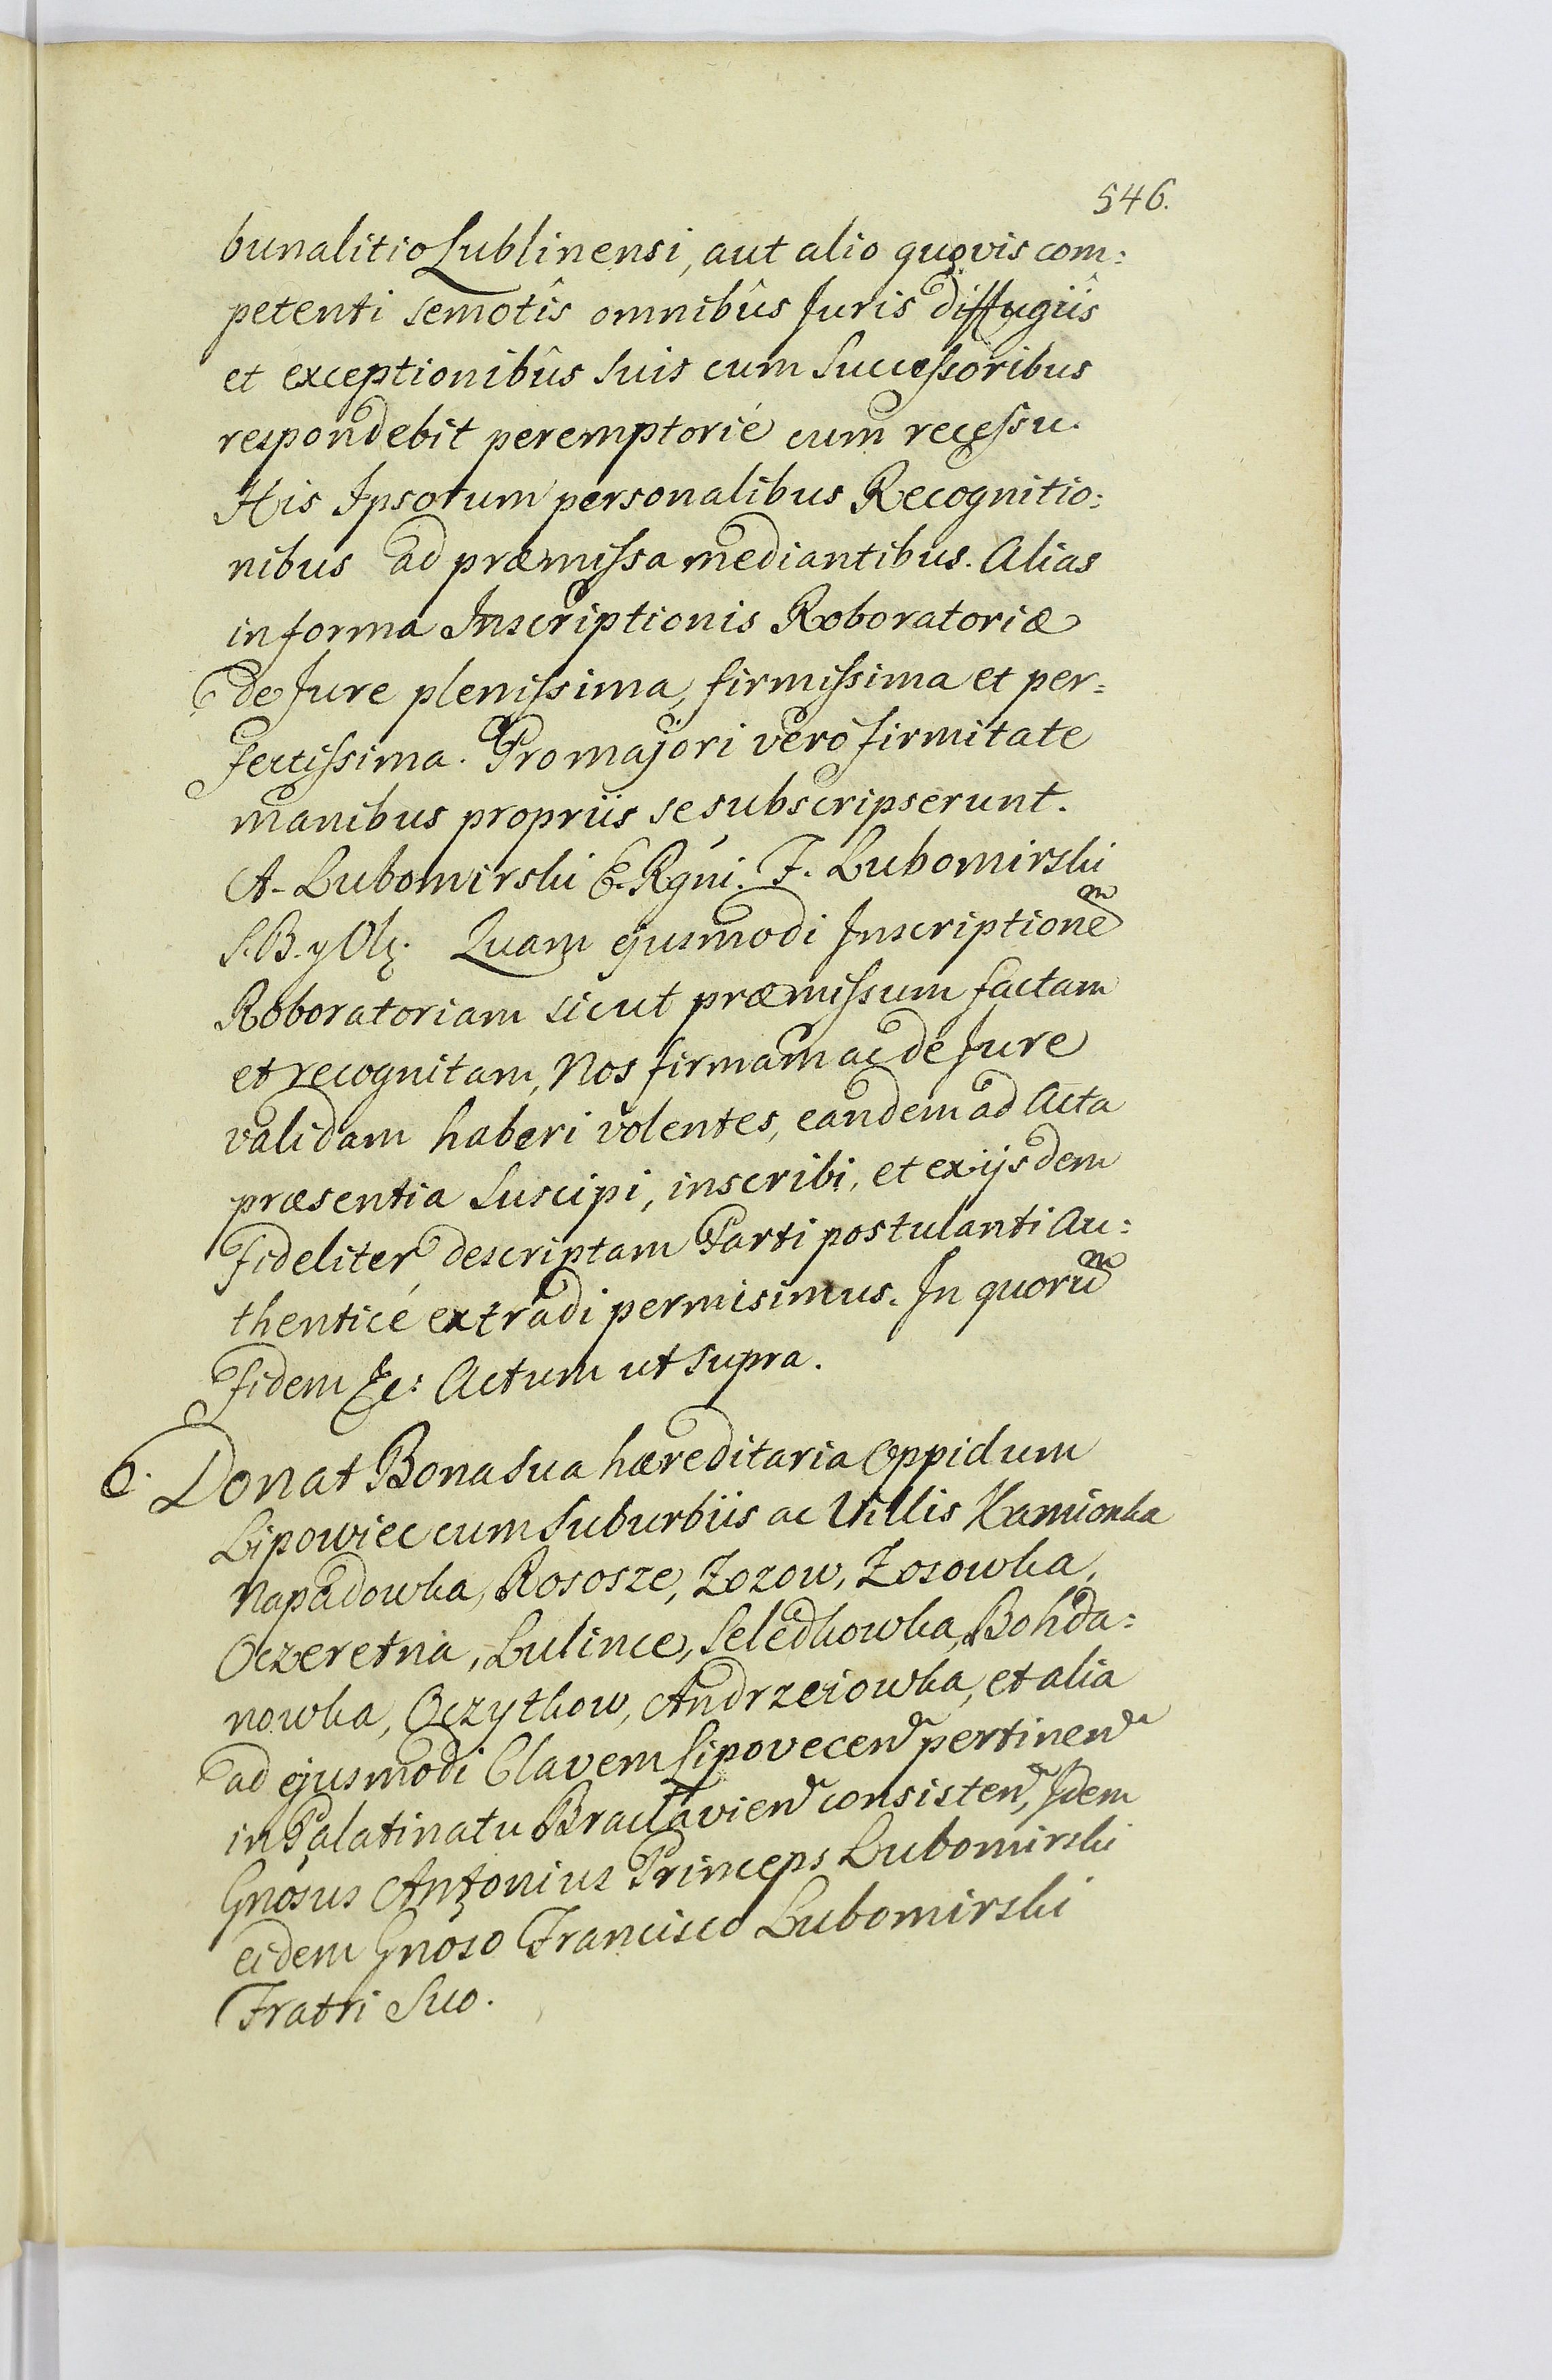 546.
bunalitio Lublinensi, aut alio quovis com:
petenti semotîs omnibûs Juris diffugiîs
et exceptionibûs suis cum Successoribus
respondebit peremptorié cum recessu.
His Ipsorum personalibus Recognitio:
nibus ad præmissa mediantibus. Alias
in forma Inscriptionis Roboratoriæ
de Jure plenissima, firmissima et per=
fectissima. Pro majori veró firmitate
manibus propriis se subscripserunt.
A. Lubomirski E. Rgni. F. Lubomirski
S. B. y Ol. Quam ejusmodi Inscriptionem
Roboratoriam sicut præmissum factam
et recognitam, Nos firmam ac de Jure
validam haberi volentes, eandem ad Acta
præsentia suscipi, inscribi, et ex ijsdem
fideliter descriptam Parti postulanti Au:
thenticé extradi permisimus. In quorum
fidem &c: Actum ut supra.
6. Donat Bona sua hæreditaria Oppidum
Lipowiec cum suburbiis ac Villis Kamionka
Napadowka, Rososze, Zozow, Zozowka,
Oczeretna, Lulince, Seledkowka, Bohda:
nowka, Oczytkow, Andrzeiowka, et alia
ad ejusmodi Clavem Lipovecen pertinen
in Palatinatu Braclavien consisten, Idem
Gnosus Antonius Princeps Lubomirski
eidem Gnoso Francisco Lubomirski
Fratri Suo.